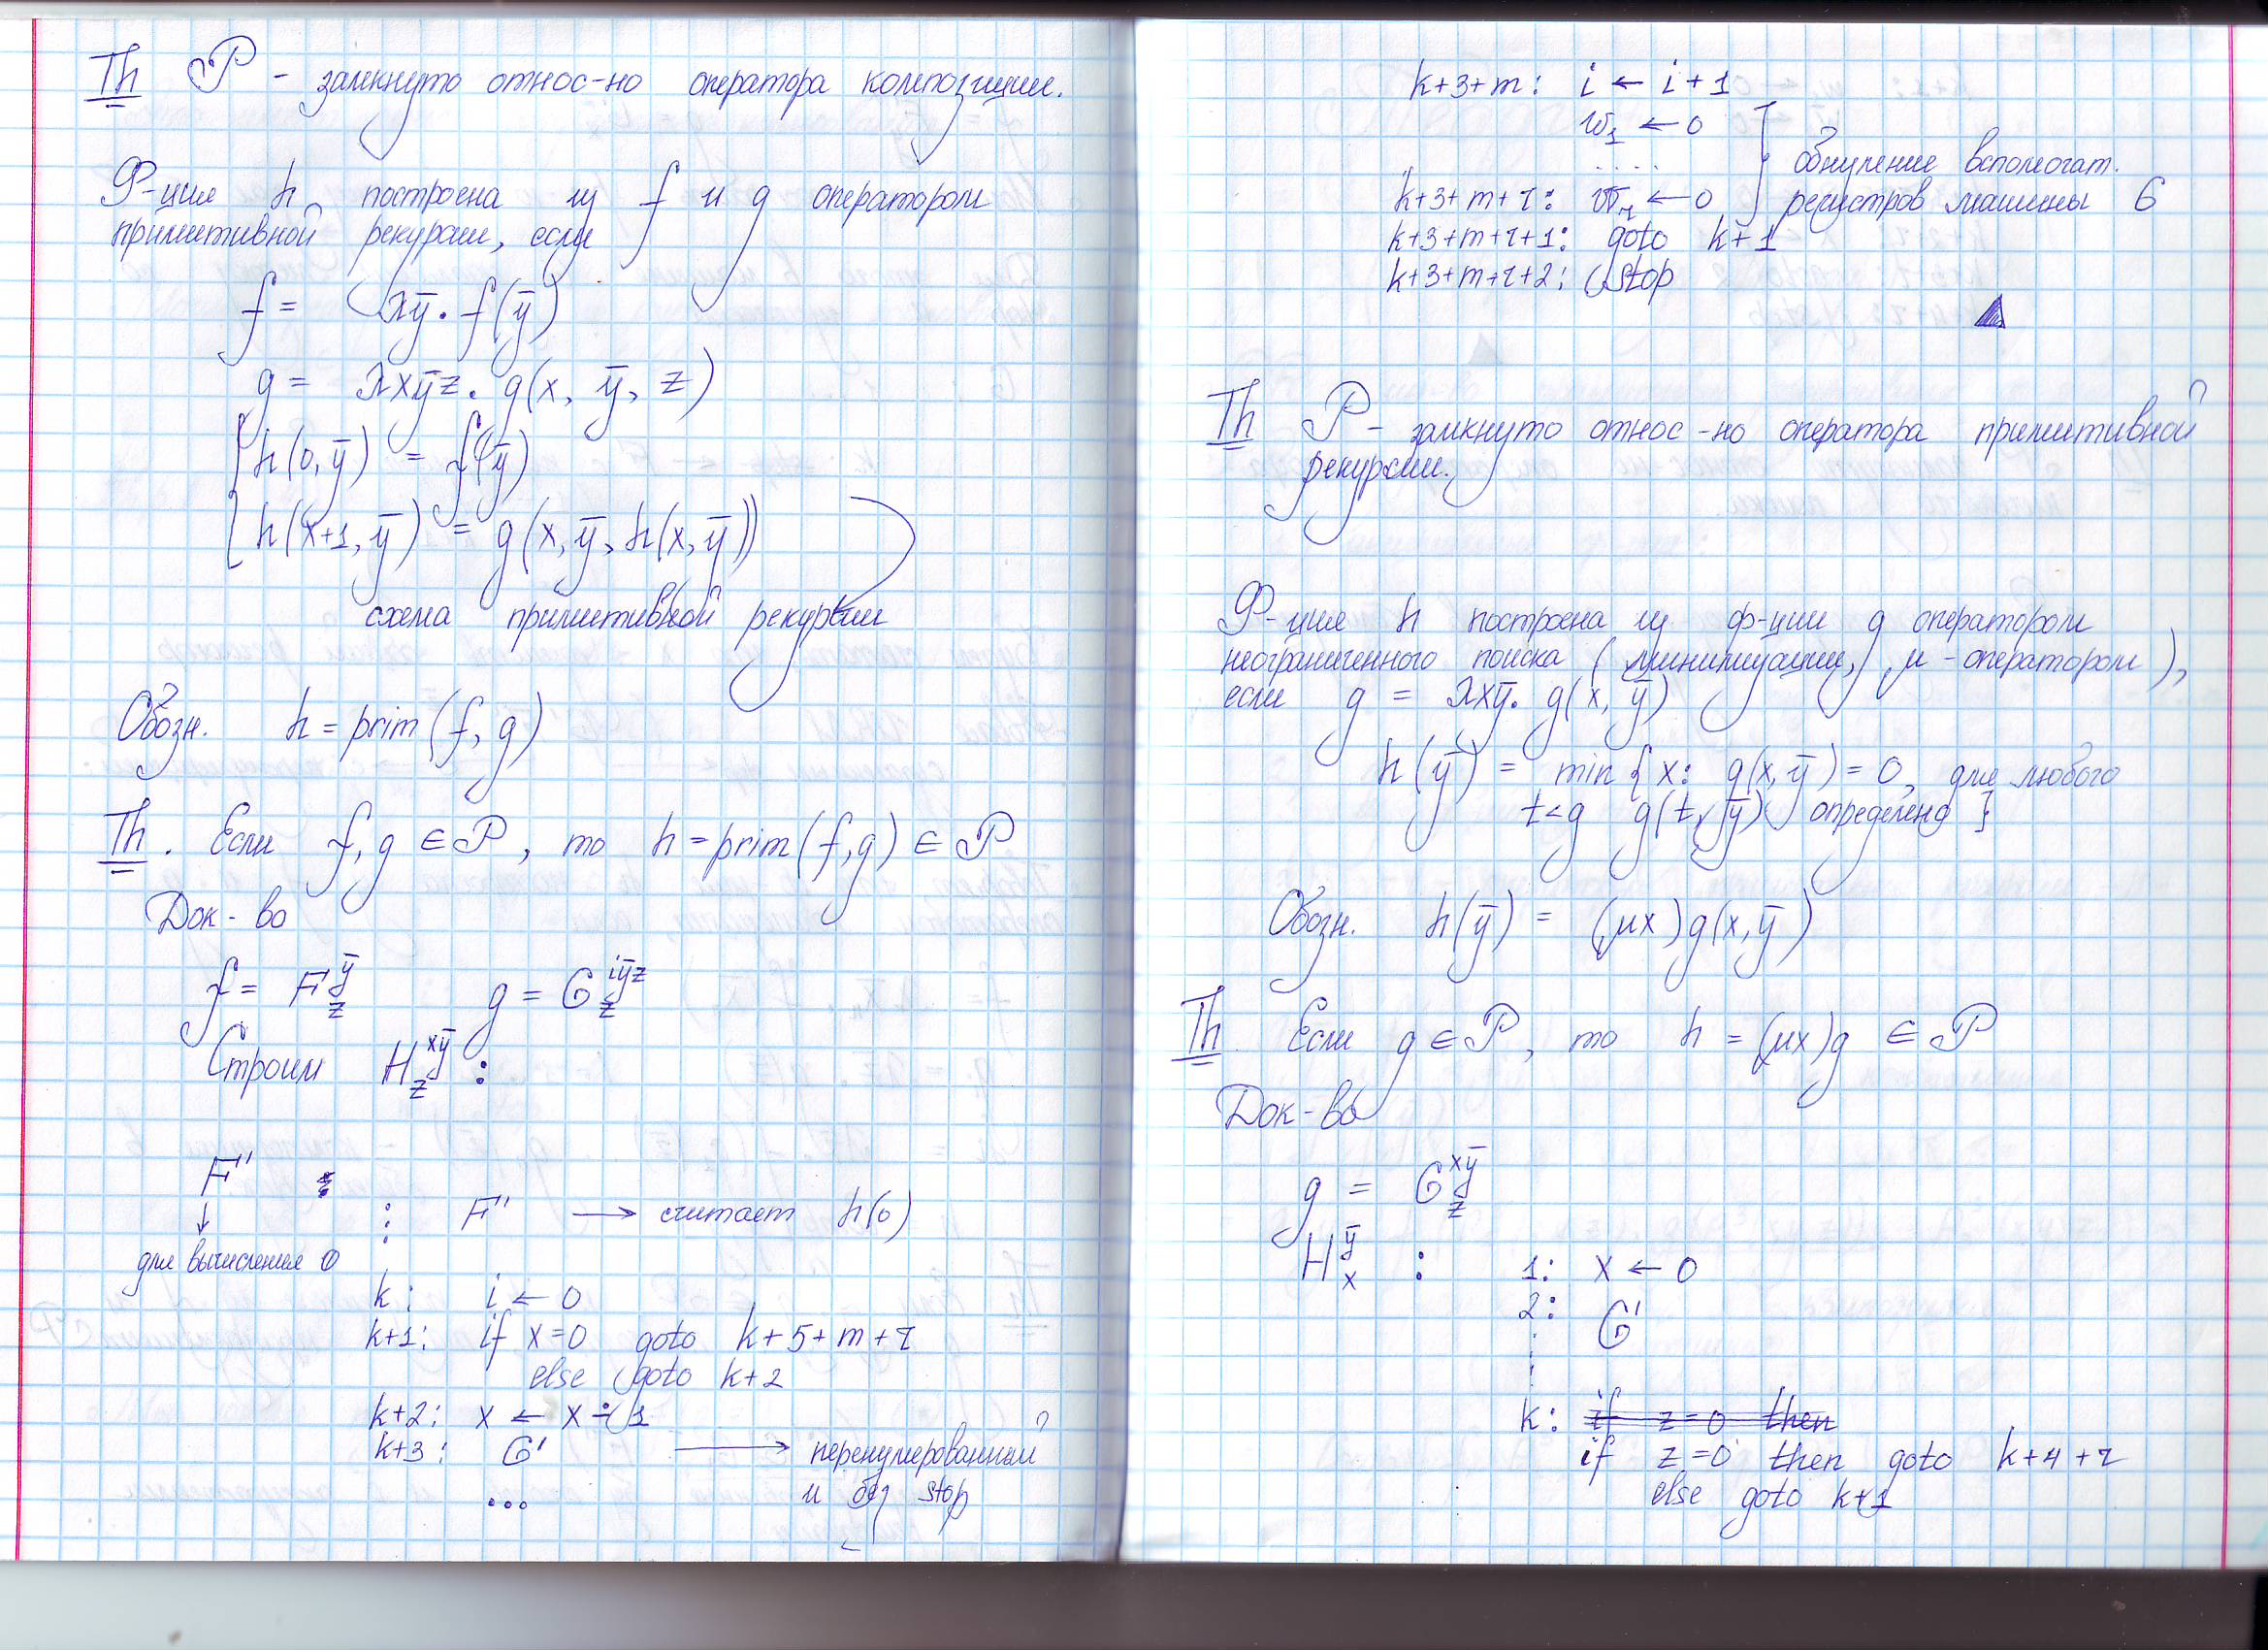 Th 𝒫 - замкнуто относ-но оператора композиции.
Ф-ция h построена из f и g оператором
примитивной рекурсии, если
f = λȳ. f(ȳ)
g = λxȳz. g(x, ȳ, z)
h(0, ȳ) = f(ȳ)
h(x+1, ȳ) = g(x, ȳ, h(x, ȳ))
схема примитивной рекурсии
Обозн. h = prim(f, g)
Th. Если f, g ∈ 𝒫, то h = prim(f, g) ∈ 𝒫
Док-во
f = F^ȳ_z g = G^iȳz_z
Строим H^xȳ_z :
F'
: F' → считает h(0)
↓
для вычисления 0
k: i ← 0
k+1: if x=0 goto k+5+m+r
else goto k+2
k+2: x ← x ∸ 1
k+3: G' → перенумерованный
... и без stop
k+3+m: i ← i+1
w₁ ← 0
..... обнуление вспомогат.
k+3+m+r: wᵣ ← 0 регистров машины G
k+3+m+r+1: goto k+1
k+3+m+r+2: stop
Th 𝒫 - замкнуто относ-но оператора примитивной
рекурсии.
Ф-ция h построена из ф-ции g оператором
неограниченного поиска (минимизации, μ-оператором),
если g = λxȳ. g(x, ȳ)
h(ȳ) = min { x: g(x, ȳ) = 0, для любого
t<g g(t, ȳ) определено }
Обозн. h(ȳ) = (μx)g(x, ȳ)
Th. Если g ∈ 𝒫, то h = (μx)g ∈ 𝒫
Док-во
g = G^xȳ_z
H^ȳ_x : 1: x ← 0
2: G'
k: if z=0 then
if z=0 then goto k+4+r
else goto k+1